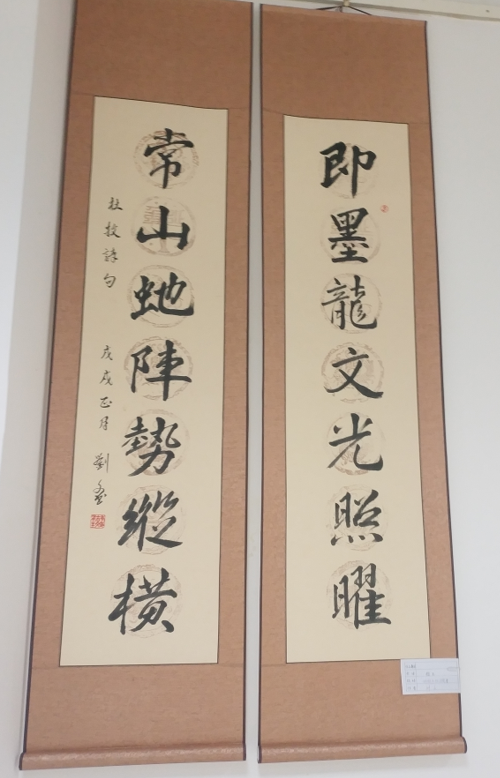 即墨龍文光照曜
常山虵陣勢縱橫
杜牧詩句
戊戌正月